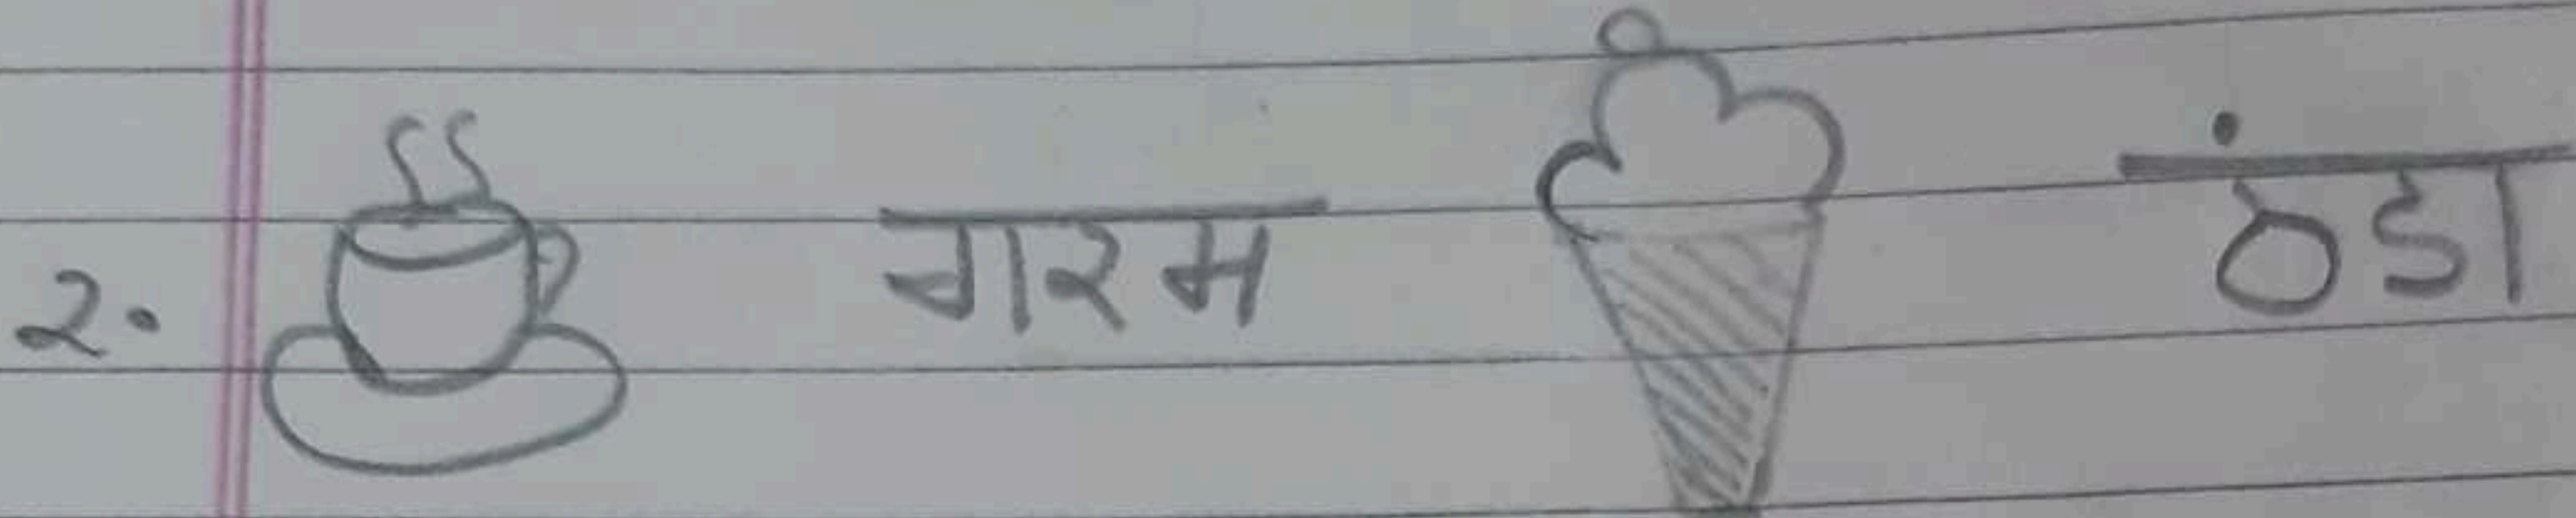 2. गरम ठंडा